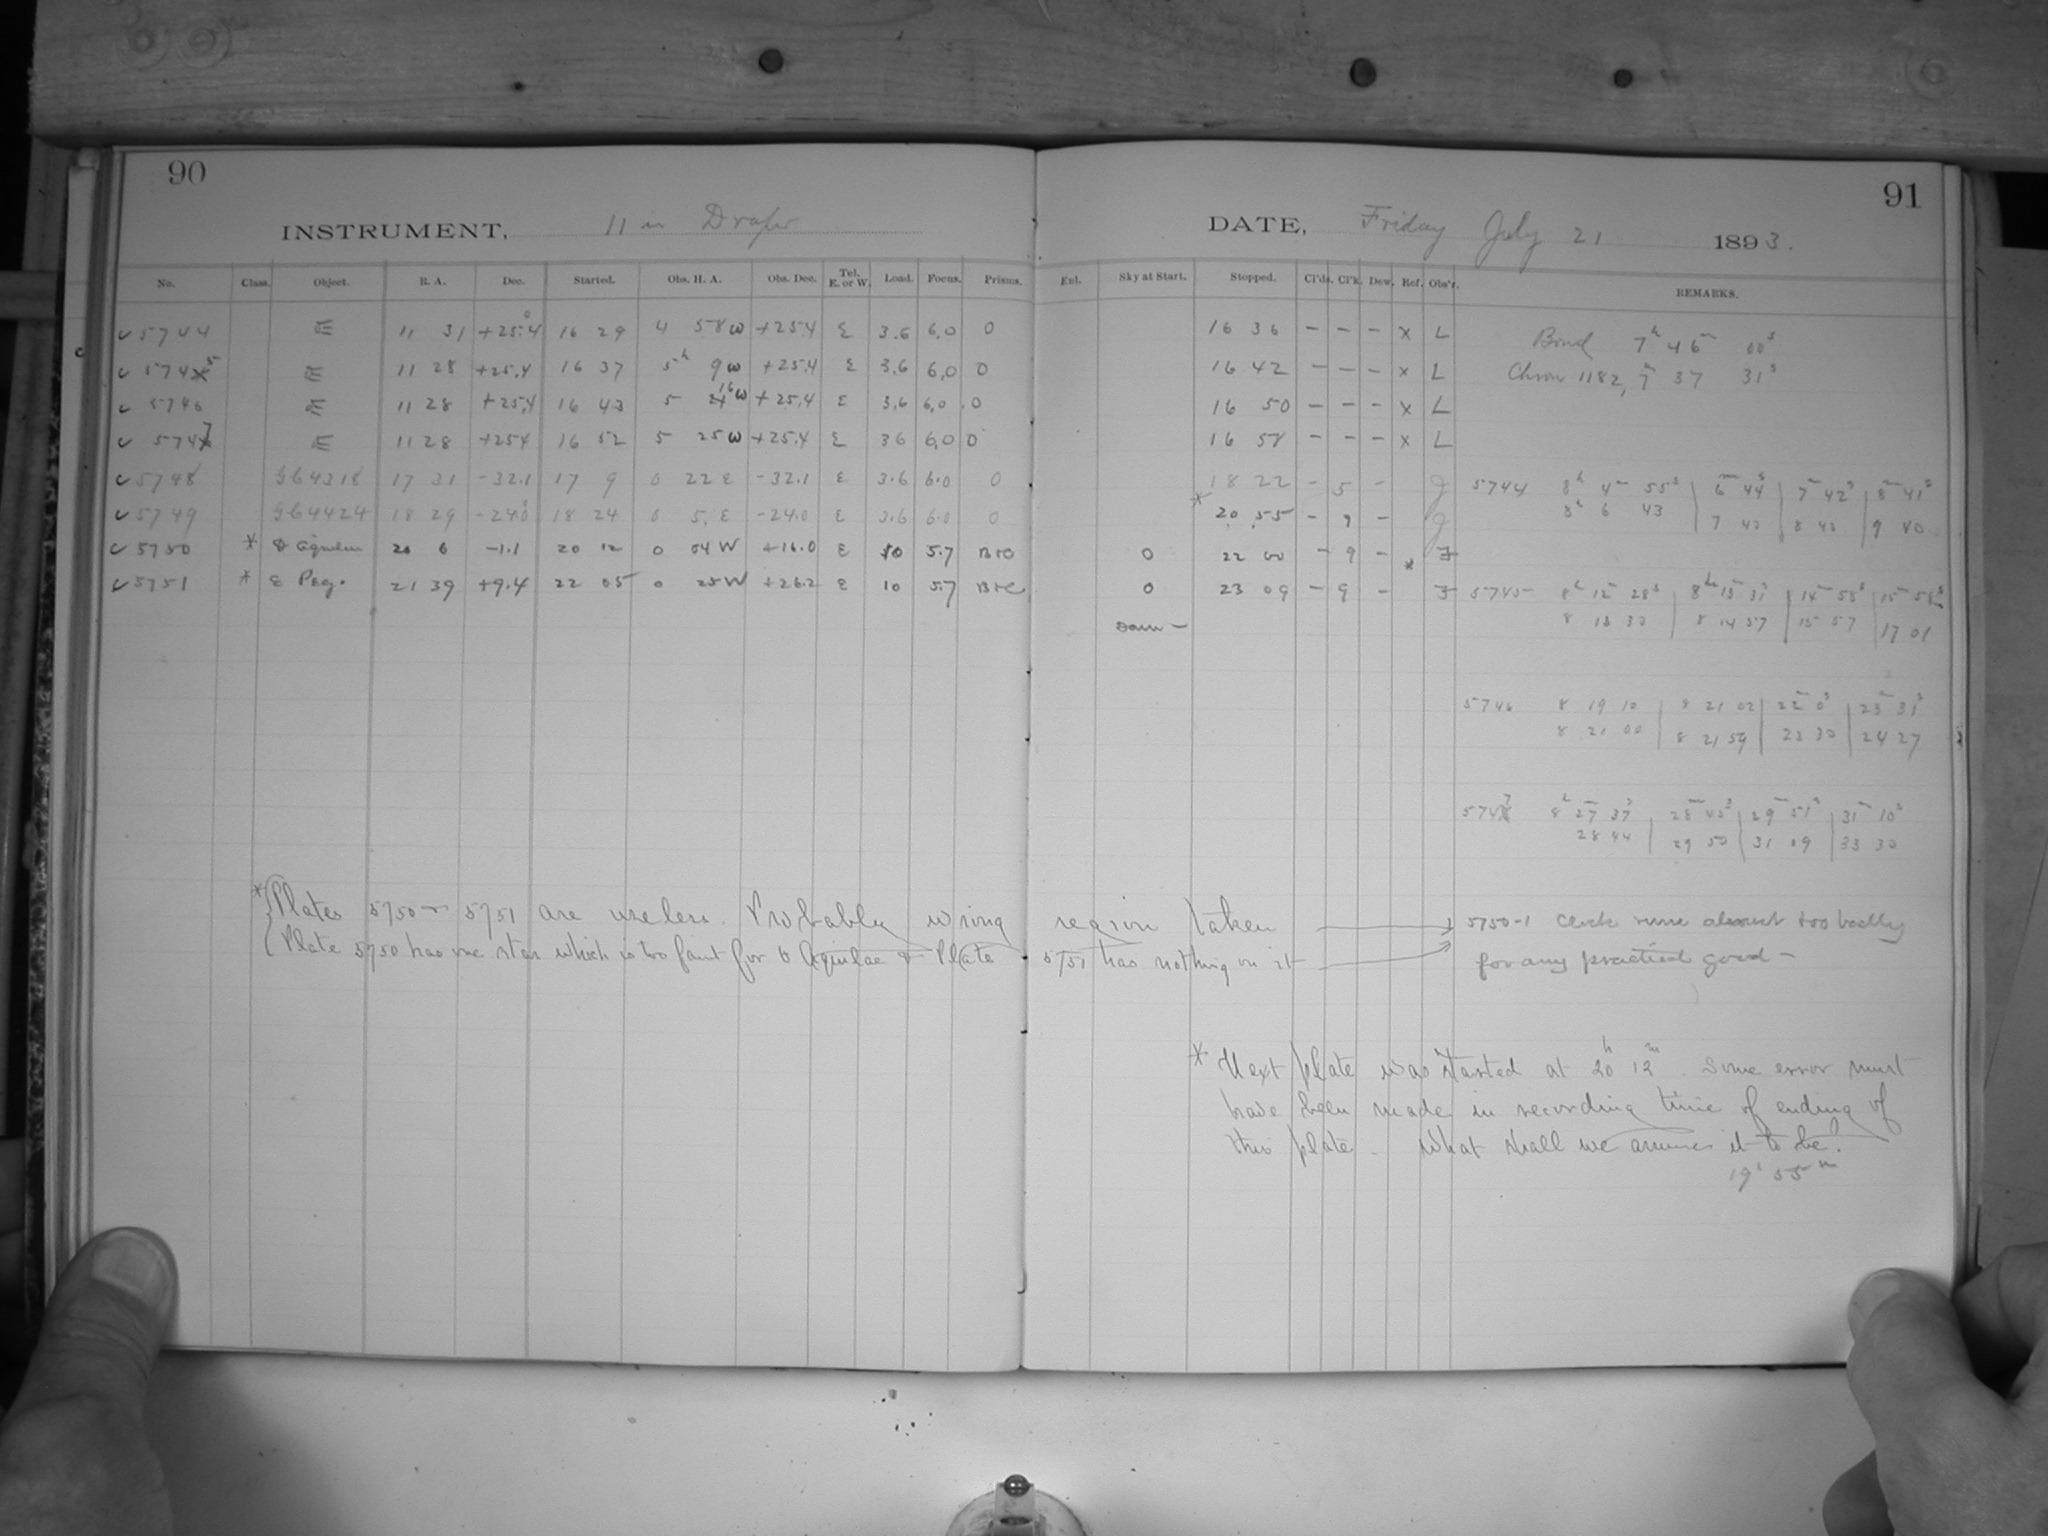 90
91
INSTRUMENT, 11 in Draper
DATE, Friday July 21 1893.
No. Class. Object. R. A. Dec. Started. Obs. H. A. Obs. Dec. Tel. E. or W. Load. Focus. Prisms. Enl. Sky at Start. Stopped. Cl'ds. Cl'k. Dew. Ref. Obs'r. REMARKS.
5744 E 11 31 +25.4 16 29 4 58 W +25.4 E 3.6 6.0 0 16 36 - - - x L
Bond 7h 46m 00s
5745 E 11 28 +25.4 16 37 5h 9 W +25.4 E 3.6 6.0 0 16 42 - - - x L
Chron 1182, 7h 37 31s
5746 E 11 28 +25.4 16 43 5 16 W +25.4 E 3.6 6.0 0 16 50 - - - x L
5747 E 11 28 +25.4 16 52 5 25 W +25.4 E 36 6.0 0 16 58 - - - x L
5748 G64318 17 31 -32.1 17 9 0 22 E -32.1 E 3.6 6.0 0 18 22 - 5 - J
5744 8h 4m 55s | 6m 44s | 7m 42s | 8m 41s
8h 6 43 | 7 42 | 8 40 | 9 40
5749 G64424 18 29 -24.0 18 24 0 5. E -24.0 E 3.6 6.0 0 * 20 55 - 9 - J
5750 * θ Aquilae 20 6 -1.1 20 12 0 04 W +16.0 E 10 5.7 B+C 0 22 00 - 9 - * F
5751 * ε Peg. 21 39 +9.4 22 05 0 25 W +26.2 E 10 5.7 B+C 0 23 09 - 9 - F
5745 8h 12m 28s | 8h 13m 31s | 14m 58s | 15m 58s
8 13 30 | 8 14 57 | 15 57 | 17 01
Dawn -
5746 8 19 10 | 8 21 02 | 22m 0s | 23m 31s
8 21 00 | 8 21 59 | 23 30 | 24 27
5747 8h 27m 37s | 28m 45s | 29m 51s | 31m 10s
28 44 | 29 50 | 31 09 | 33 30
* Plates 5750 + 5751 are useless. Probably wrong region taken
Plate 5750 has one star which is too faint for θ Aquilae + Plate 5751 has nothing on it
5750-1 Clock runs almost too badly
for any practical good -
* Next plate was started at 20h 12m. Some error must
have been made in recording time of ending of
this plate. What shall we assume it to be.
19h 55m